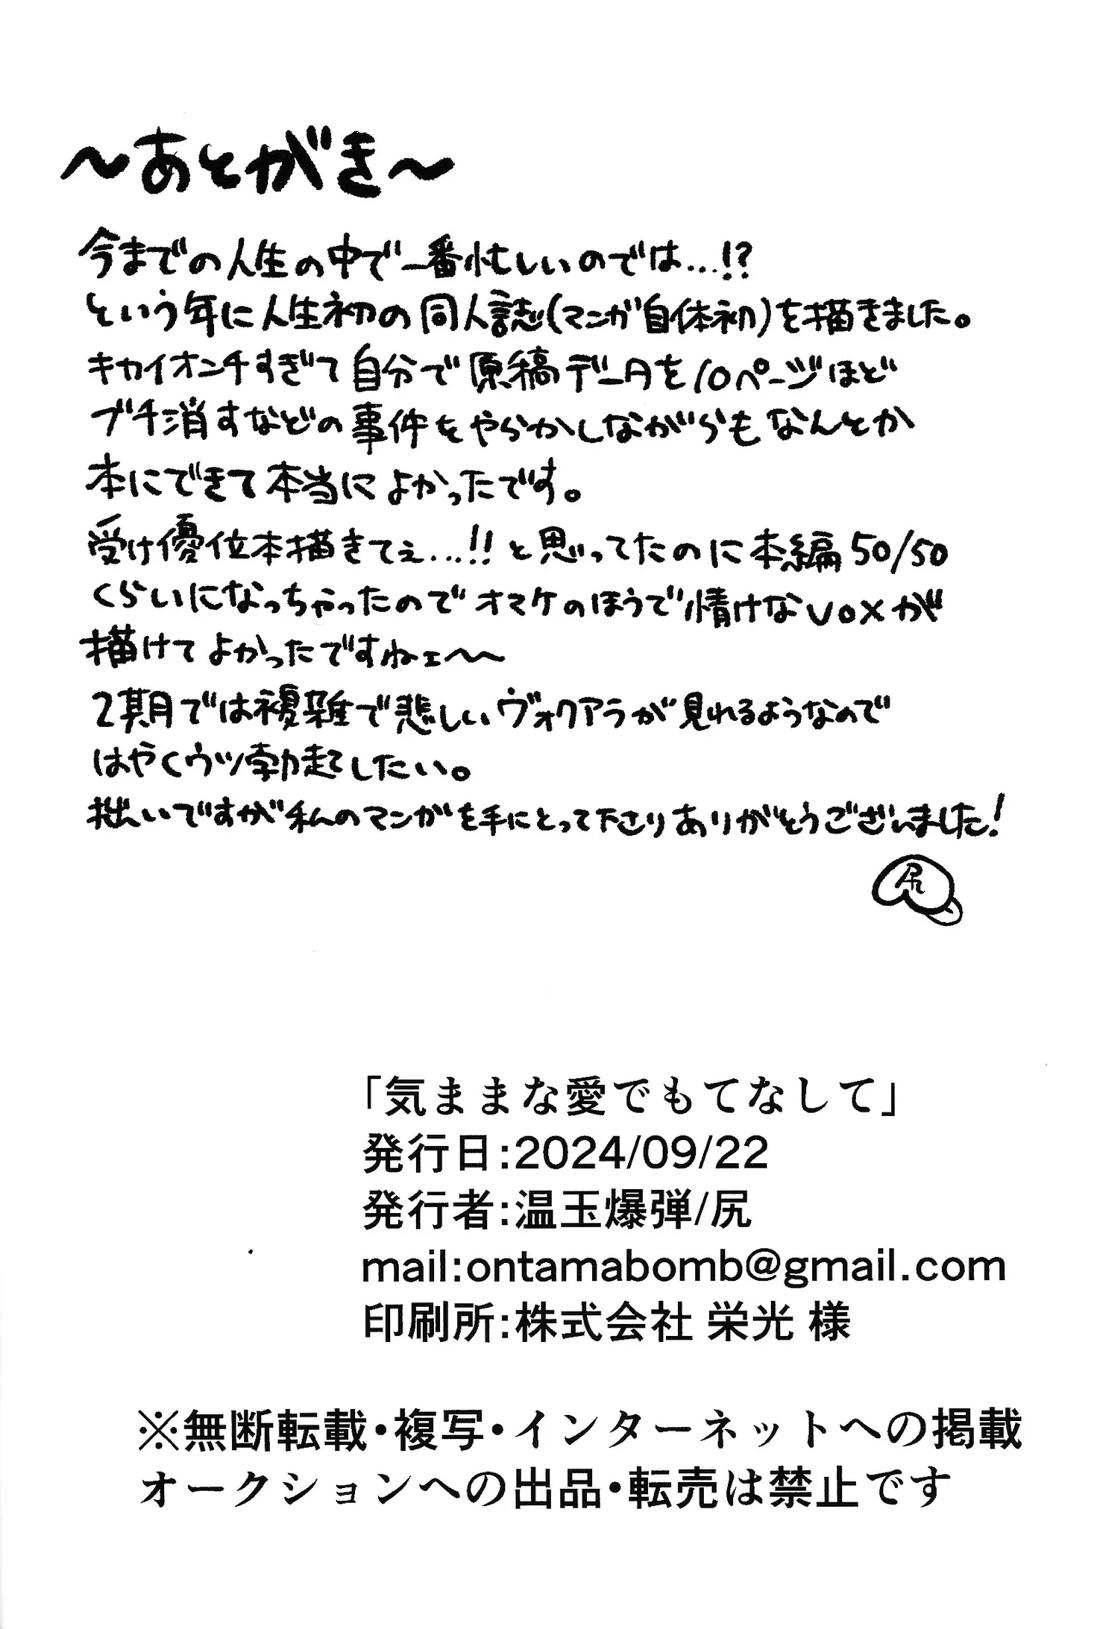 ～あとがき～
今までの人生の中で一番忙しいのでは…!?
という年に人生初の同人誌(マンガ自体初)を描きました。
キカイオンチすぎて自分で原稿データを10ページほど
ブチ消すなどの事件をやらかしながらもなんとか
本にできて本当によかったです。
受け優位本描きてぇ…!!と思ってたのに本編50/50
くらいになっちゃったのでオマケのほうで情けなVOXが
描けてよかったですねェ〜〜
2期では複雑で悲しいヴォクアラが見れるようなので
はやくウツ勃起したい。
拙いですが私のマンガを手にとって下さりありがとうございました!
尻
「気ままな愛でもてなして」
発行日:2024/09/22
発行者:温玉爆弾/尻
mail:ontamabomb@gmail.com
印刷所:株式会社 栄光 様
※無断転載・複写・インターネットへの掲載
オークションへの出品・転売は禁止です